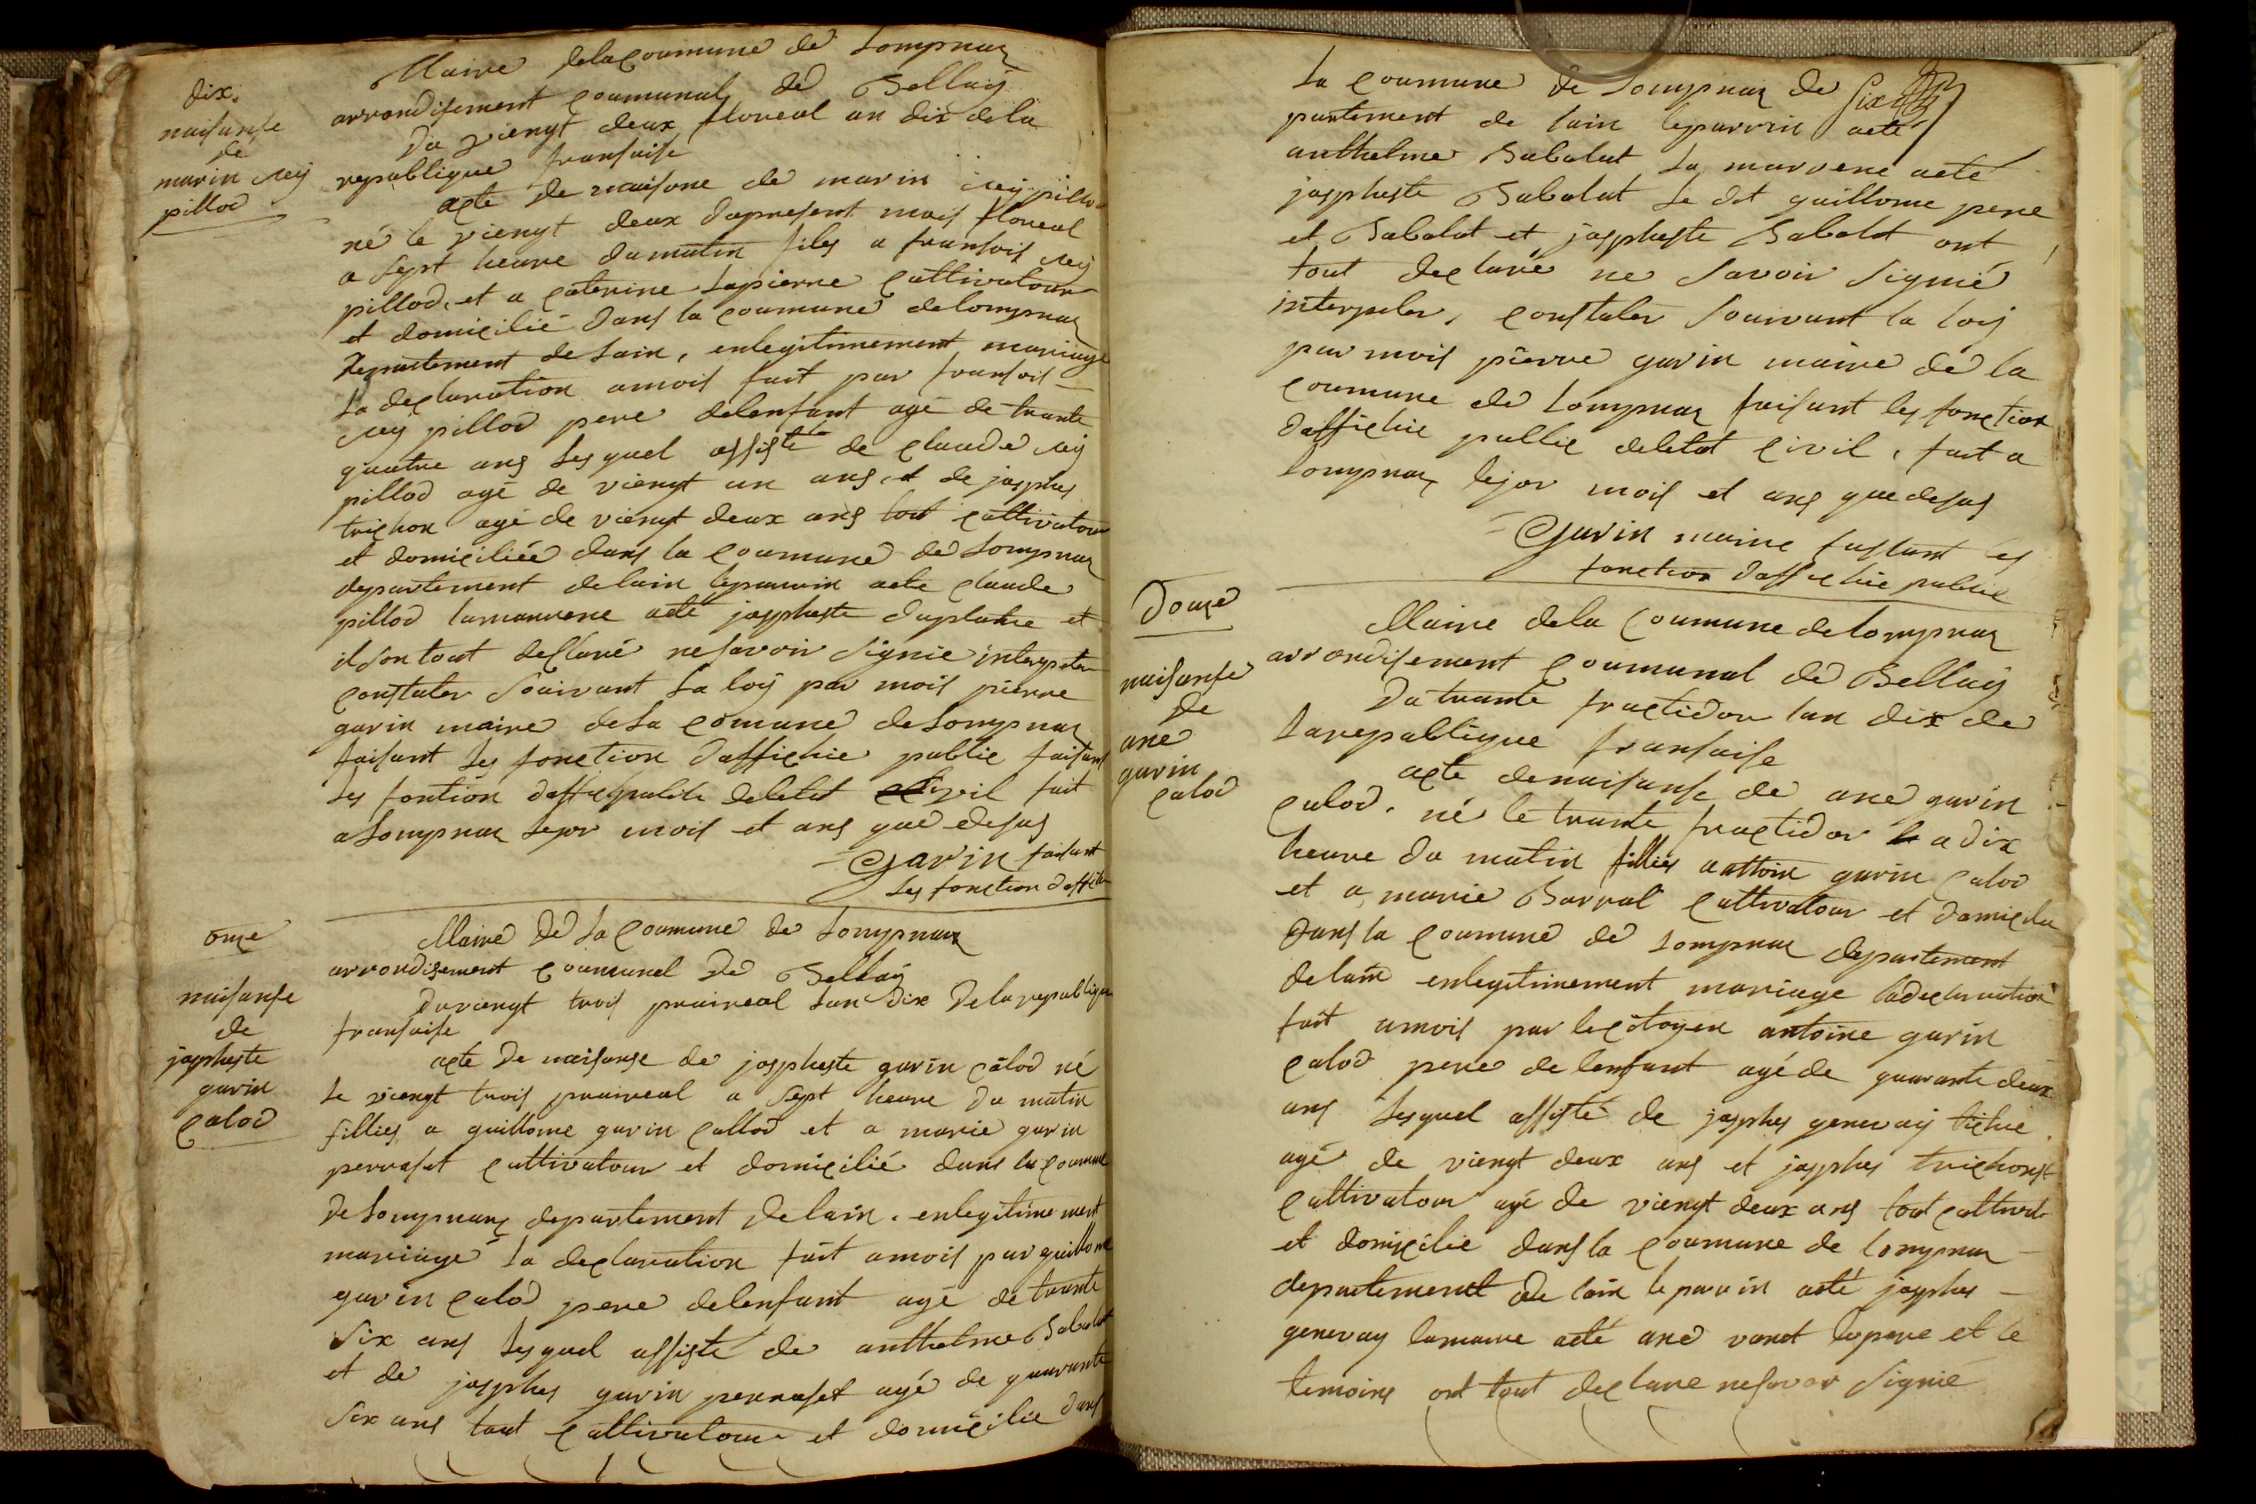 dix.
naisanse
de
marin rey
pillod
Maire dela coumune de Lompnaz
arrondisement coumunal de Bellaÿ
Du viengt deux floreal an dix dela
republique fransaise
acte de naisanse de marin rey pillod
né le viengt deux dupresent mois floreal
a sept heure dumatin fils a fransois rey
pillod et a caterine Lapierre cultivatour
et domicilié dans la coumune delompnaz
Departement de Lain, enlegitimement mariage
La declaration amois fait par fransois
rey pillod pere delenfant agé de trante
quatre ans Lesquel assisté de claude rey
pillod agé de viengt un ans et de josphes
trichon agé de viengt deux ans tout cultivatour
et domiciliée dans la coumune de Lompnaz
departement delain leparrain aete claude
pillod lamarrene aeté jospheste duplatre et
ilson tout declaré nesavoir signie interpeler
constater souivant La loÿ par mois pierre
garin maire deLa comune de Lompnaz
faisant Les fonction daffichie public faisant
Les fontion daffi publie deletat civil fait
a Lompnaz Lejor mois et ans que desus
Garin faisant
Les fonction daffichie
onze
naisanse
de
jospheste
garin
calod
Maire de La coumune de Lompnaz
arrondisement coumunal De Bellaÿ
Duviengt trois praireal Lan dix De la republique
fransaise
acte De naisanse de jospheste garin calod né
Le viengt trois praireal a sept heure du matin
fillies a guillome garin callod et a marie garin
perraset cultivatour et domicilié dans la coumune
De Lompnaz departement de lain. enlegitime ment
mariage La declaration fait amois par guillome
garin calod pere delenfant agé de trante
six ans Lesquel assisté de anthelme Babolat
et de josphes garin perraset agé de quarante
six ans tout cultivatour et domicilie dans
La coumune de Lompnaz de
partement de lain leparrin aeté
anthelme Babolat La marrene aeté
josphéste Babolat Le dit guillome pere
et Babolat et josphéste Babolat ont
tout declaré ne savoir signié
interpeler, constater souivant la loÿ
par mois pierre garin maire de la
coumune de Lompnaz faisant les fonction
daffichie public deletat civil, fait a
Lompnaz lejor mois et ans quedesus
Garin maire faisant les
fonction daffichie public
Douze
naisanse
de
ane
garin
calod
Maire dela coumune de Lompnaz
arrondisement coumunal de Bellaÿ
Du trante fructidor lan dix de
Larepublique fransaise
acte denaisanse de ane garin
calod. né le trante fructidor a dix
heure du matin fillies a antoin garin calod
et a marie Barral cultivatour et domicilie
Dans la coumune de Lompnaz departement
de lain enlegitimement mariage ladeclaration
fait amois par lecitoyen antoine garin
calod pere de lenfant agé de quarante deux
ans Lesquel assisté de josphes genevay
agé de viengt deux ans et josphes trichon
cultivatour agé de viengt deux ans tout cultivat
et domicilie dans la coumune de lompnaz
departement de lain leparrin aeté josphes
genevay lamarre aeté ane le pere et le
temoins ont tout declare nesavoir signié